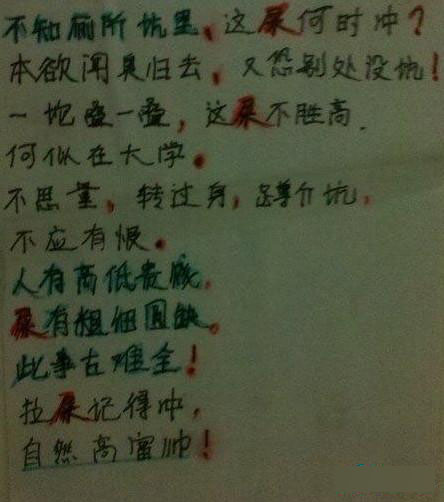 不知厕所坑里，这屎何时冲？
本欲闻臭归去，又恐别处没坑！
一坨叠一叠，这屎不胜高.
何似在大学。
不思量，转过身，蹲个坑，
不应有恨。
人有高低贵贱，
屎有粗细圆缺。
此事古难全！
拉屎记得冲，
自然高富帅！